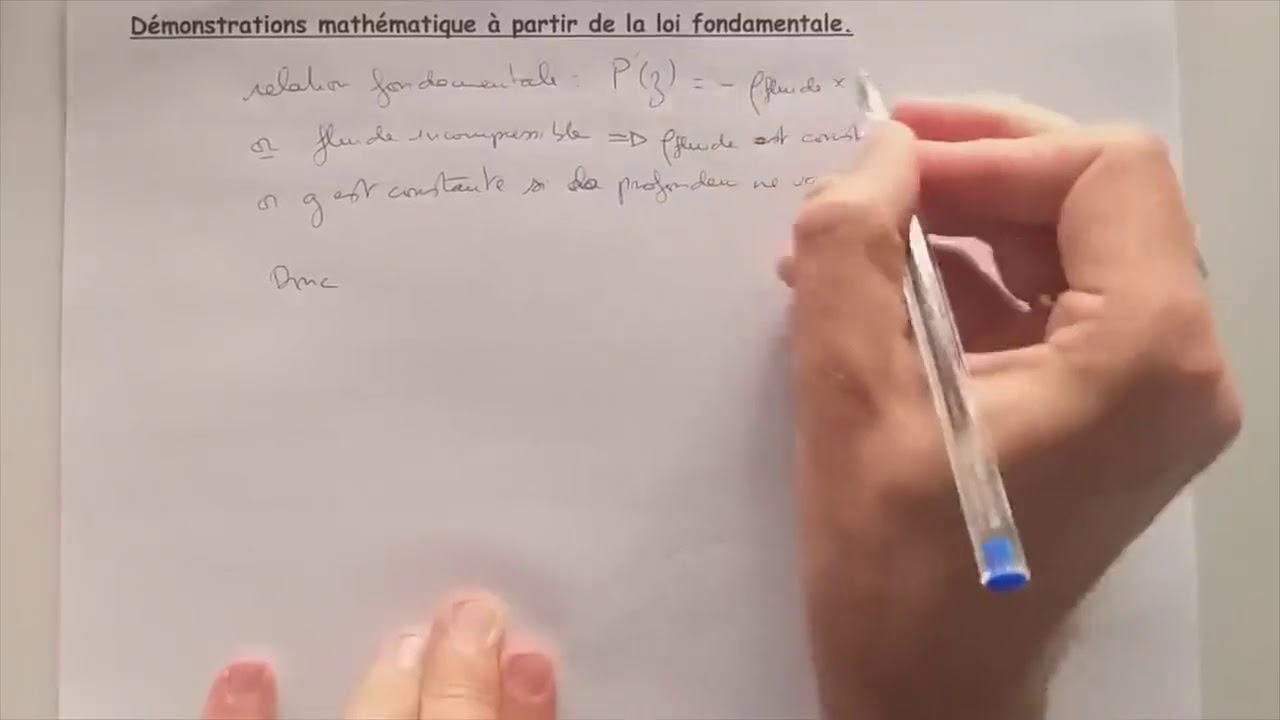 Démonstrations mathématique à partir de la loi fondamentale.
relation fondamentale : P'(z) = - ρfluide ×
or fluide incompressible => ρfluide est const
or g est constante si la profondeur ne va
Donc